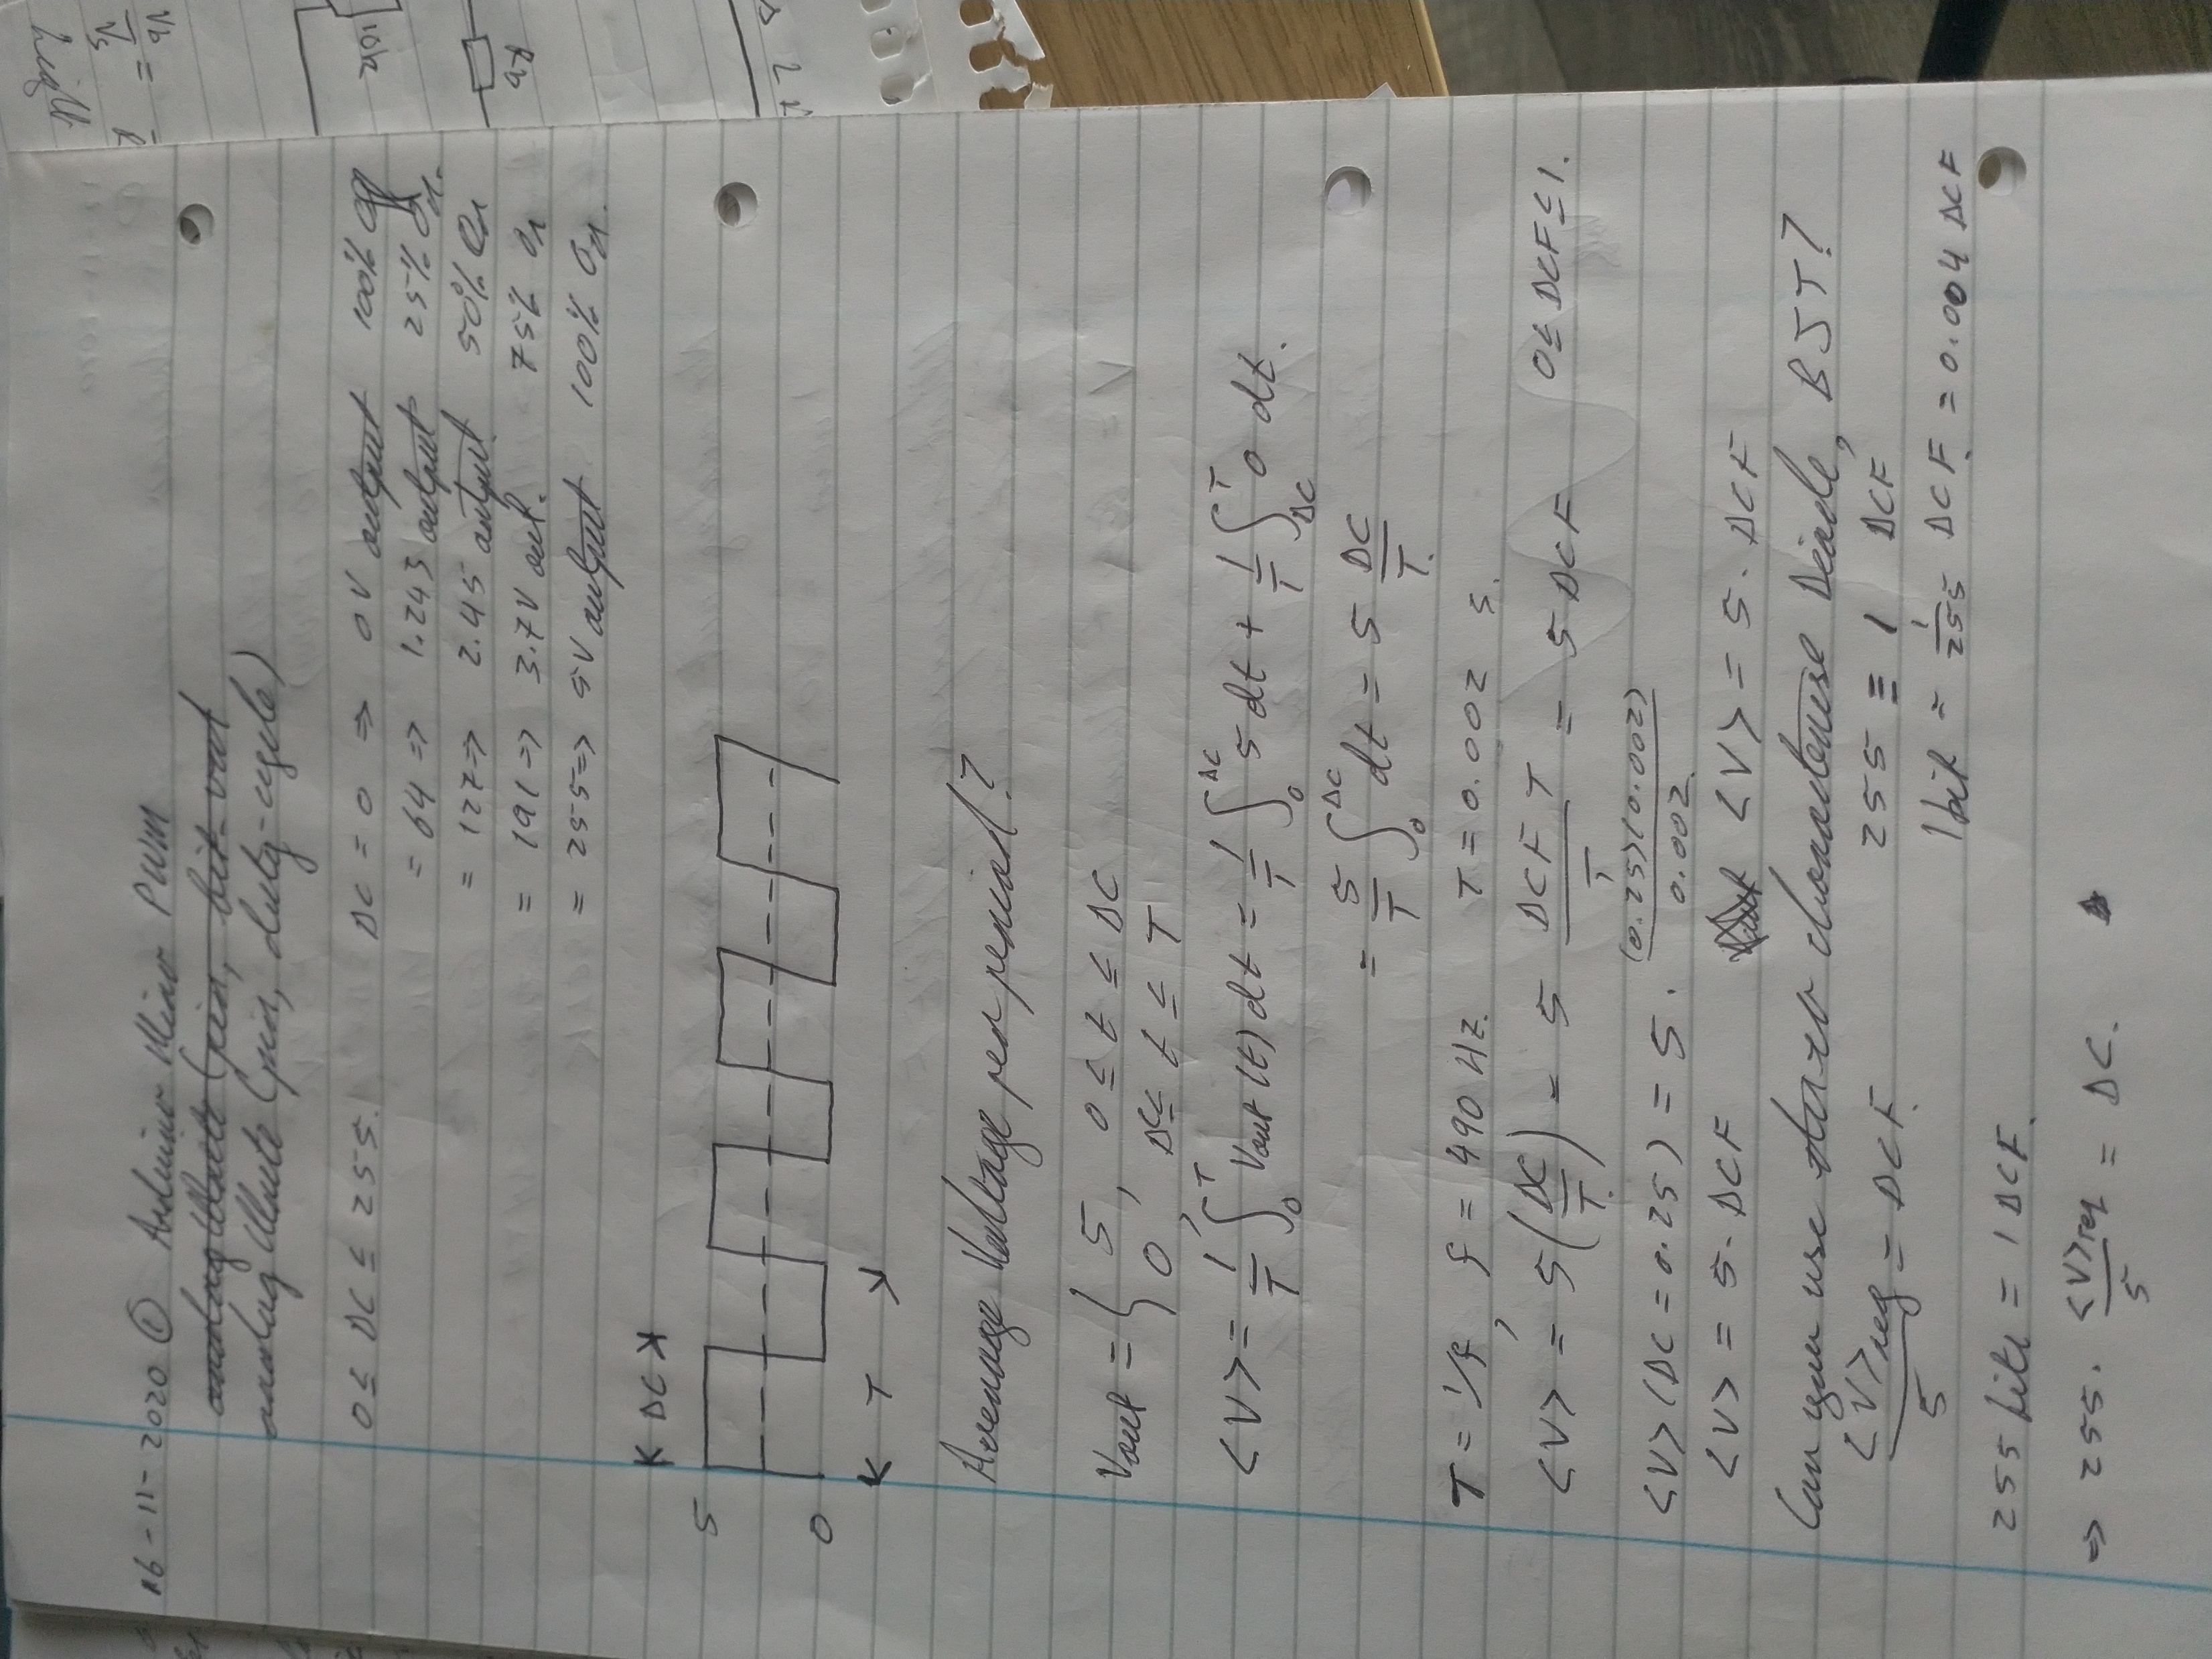 16-11-2020 ① Arduino Micro PWM
analogWrite (pin, bit-val
analogWrite (pin, duty-cycle)
0 ≤ DC ≤ 255. DC = 0 => 0 V output 100% Off
= 64 => 1.243 output 25% On.
= 127 => 2.45 output 50% On
= 191 => 3.7V out. 75% On
= 255 => 5V output 100% On.
DC
5
0
T
Average Voltage per period?
Vout = { 5 , 0 ≤ t ≤ DC
0 , DC ≤ t ≤ T
<V> = 1/T ∫₀ᵀ Vout(t) dt = 1/T ∫₀ᴰᶜ 5 dt + 1/T ∫_DC^T 0 dt.
= 5/T ∫₀ᴰᶜ dt = 5 DC/T.
T = 1/f , f = 490 Hz. T = 0.002 s.
<V> = 5(DC/T) = 5 DCF T/T = 5 DCF 0 ≤ DCF ≤ 1.
<V>(DC = 0.25) = 5. (0.25)(0.002)/0.002
<V> = 5. DCF <V> = 5. DCF
Can you use to characterise Diode, BJT?
<V>req/5 = DCF. 255 ≡ 1 DCF
1 bit = 1/255 DCF = 0.004 DCF
255 bits = 1 DCF.
=> 255. <V>req/5 = DC.